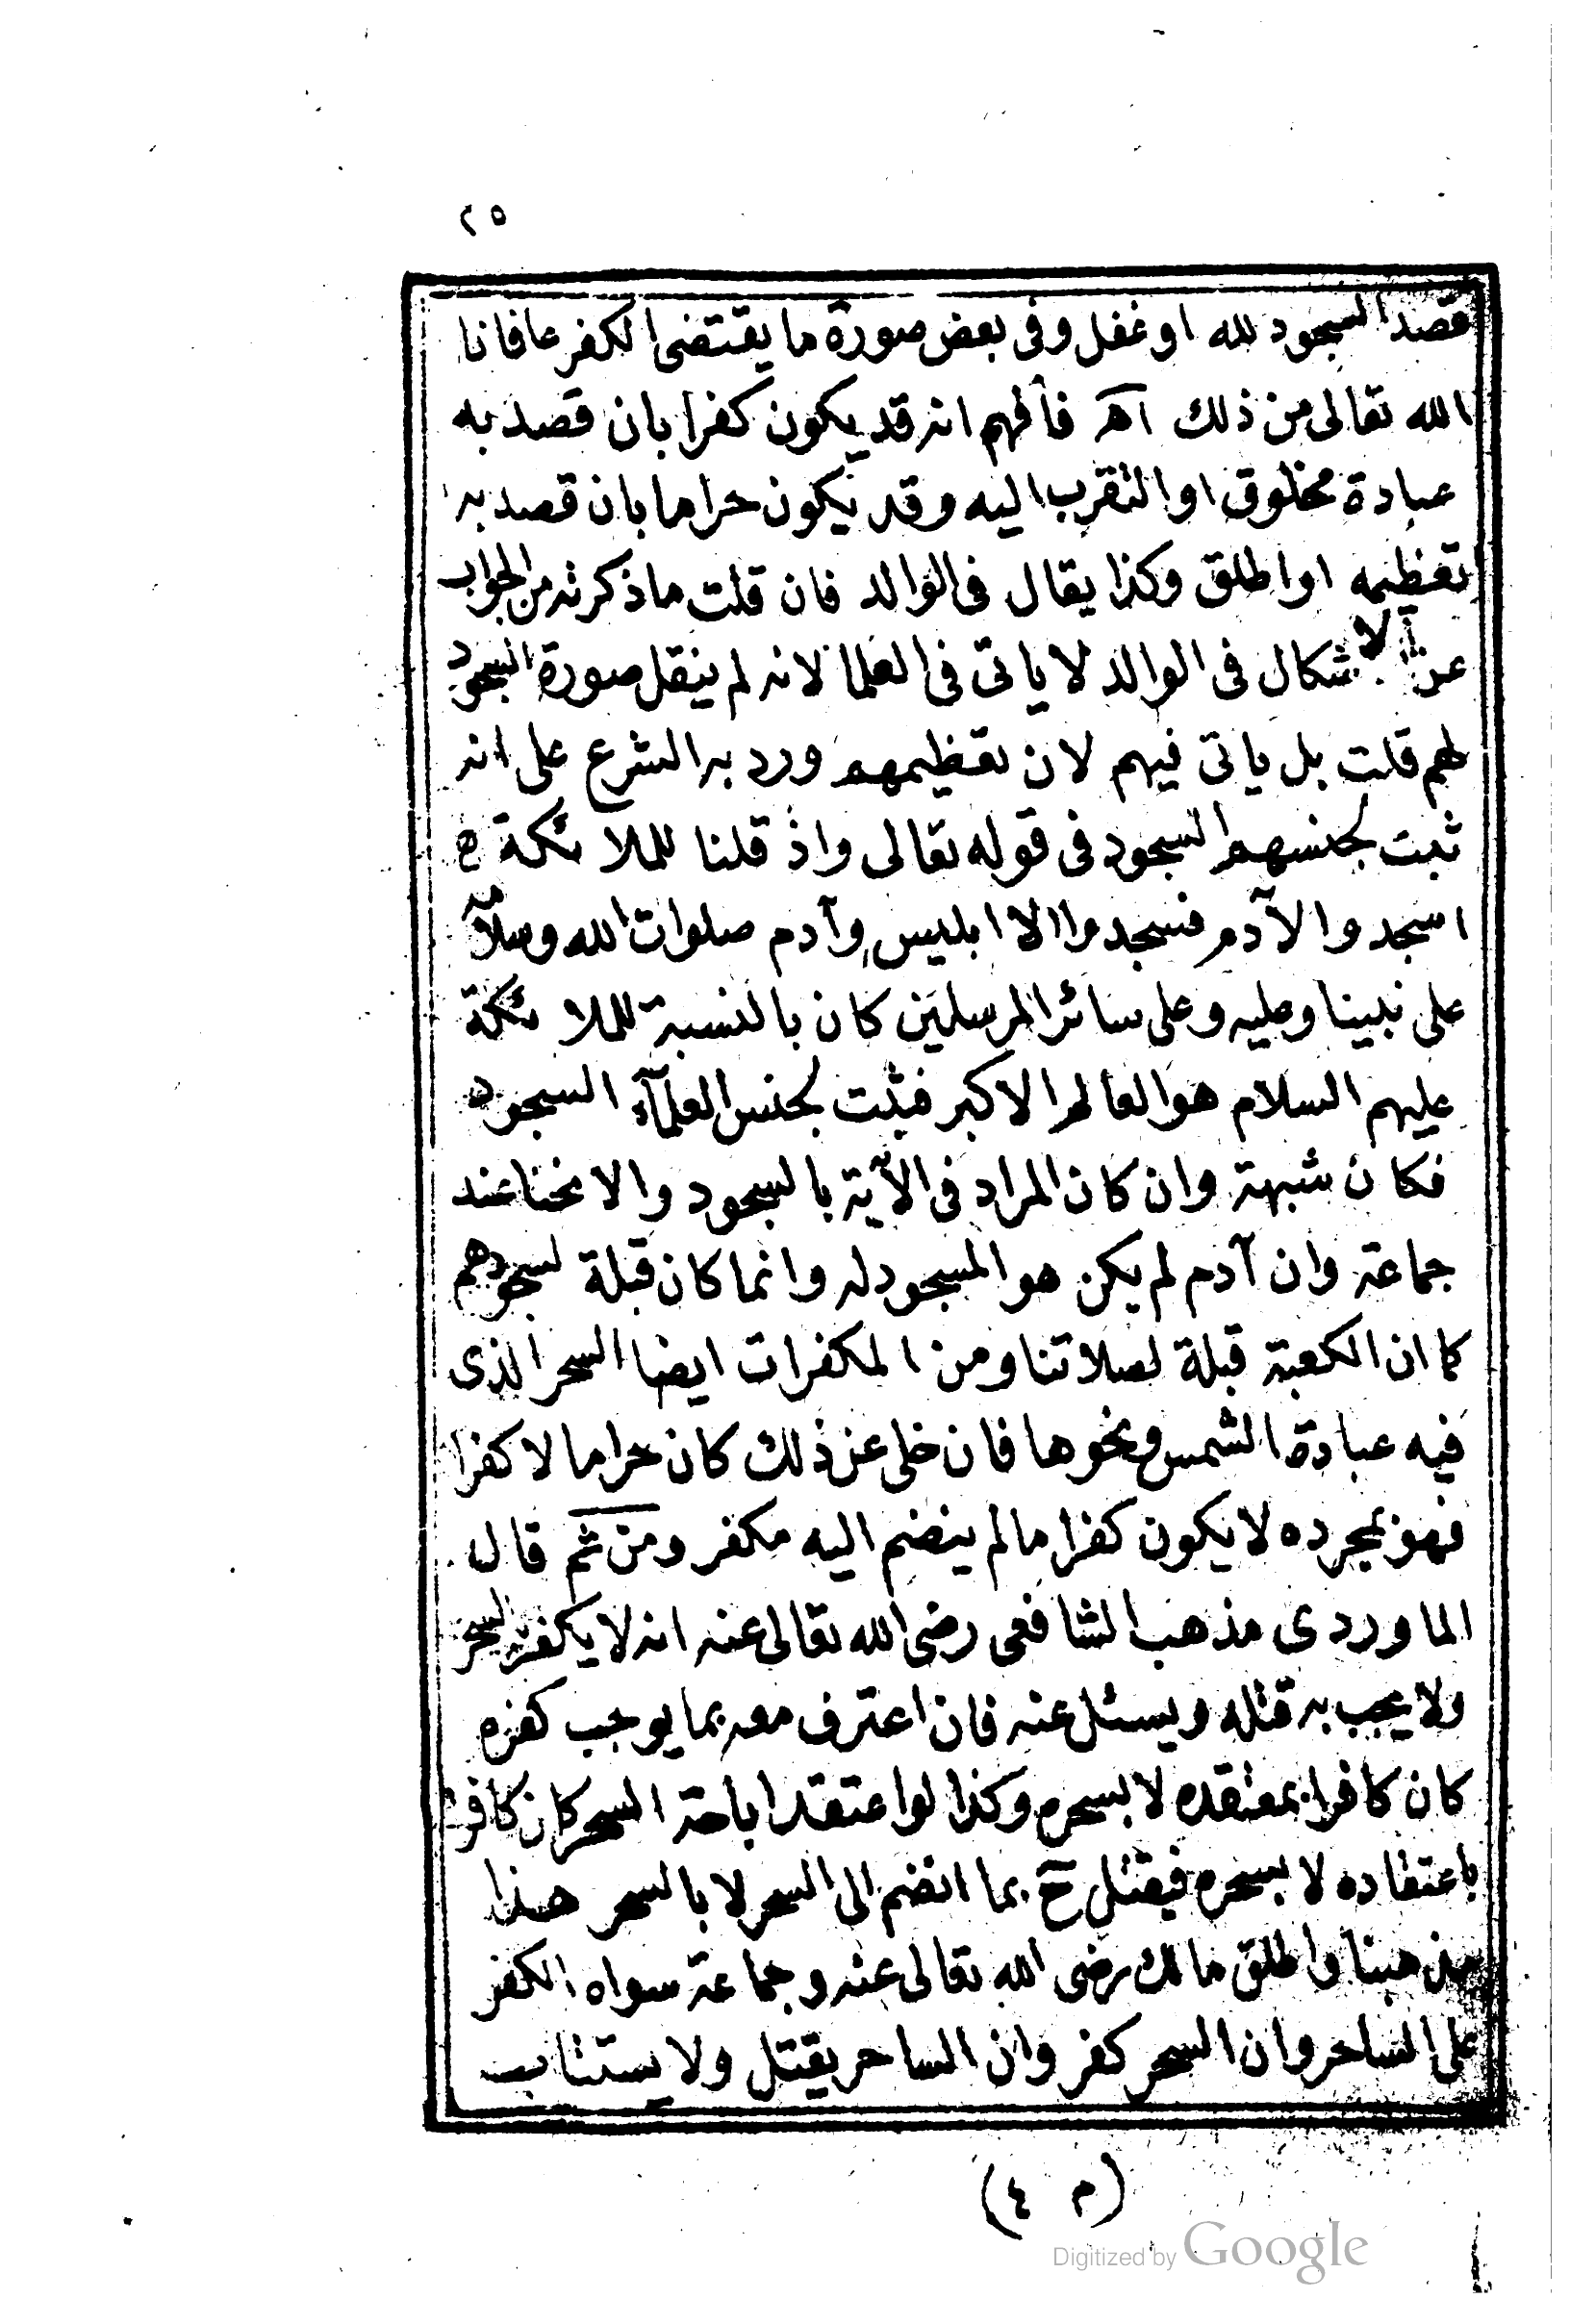 ٢٥
قصد السجود لله او غفل وفى بعض صورة ما يقتضى الكفر عافانا
الله تعالى من ذلك اهـ فأفهم انه قد يكون كفرا بان قصد به
عبادة مخلوق او التقرب اليه وقد يكون حراما بان قصد به
تعظيمه او اطلق وكذا يقال فى الوالد فان قلت ما ذكرته من الجواب
عن الاشكال فى الوالد لا ياتى فى العلما لانه لم ينقل صورة السجود
لهم قلت بل ياتى فيهم لان تعظيمهم ورد به الشرع على انه
ثبت لجنسهم السجود فى قوله تعالى واذ قلنا للملائكة
اسجدوا لآدم فسجدوا الا ابليس وآدم صلوات الله وسلامه
على نبينا وعليه وعلى سائر المرسلين كان بالنسبة للملائكة
عليهم السلام هو العالم الاكبر فثبت لجنس العلمآء السجود
فكان شبهة وان كان المراد فى الآية بالسجود والانحنا عند
جماعة وان آدم لم يكن هو المسجود له وانما كان قبلة لسجودهم
كما ان الكعبة قبلة لصلاتنا ومن المكفرات ايضا السحر الذى
فيه عبادة الشمس ونحوها فان خلى عن ذلك كان حراما لا كفرا
فهو بمجرده لا يكون كفرا ما لم ينضم اليه مكفر ومن ثم قال
الماوردى مذهب الشافعى رضى الله تعالى عنه انه لا يكفر بالسحر
ولا يجب به قتله ويسئل عنه فان اعترف معه بما يوجب كفره
كان كافرا بمعتقده لا بسحره وكذا لو اعتقد اباحة السحر كان كافرا
باعتقاده لا بسحره فيقتل ح بما انضم الى السحر لا بالسحر هذا
مذهبنا واطلق مالك رضى الله تعالى عنه وجماعة سواه الكفر
على الساحر وان السحر كفر وان الساحر يقتل ولا يستتاب
(م ٤)
Digitized by Google